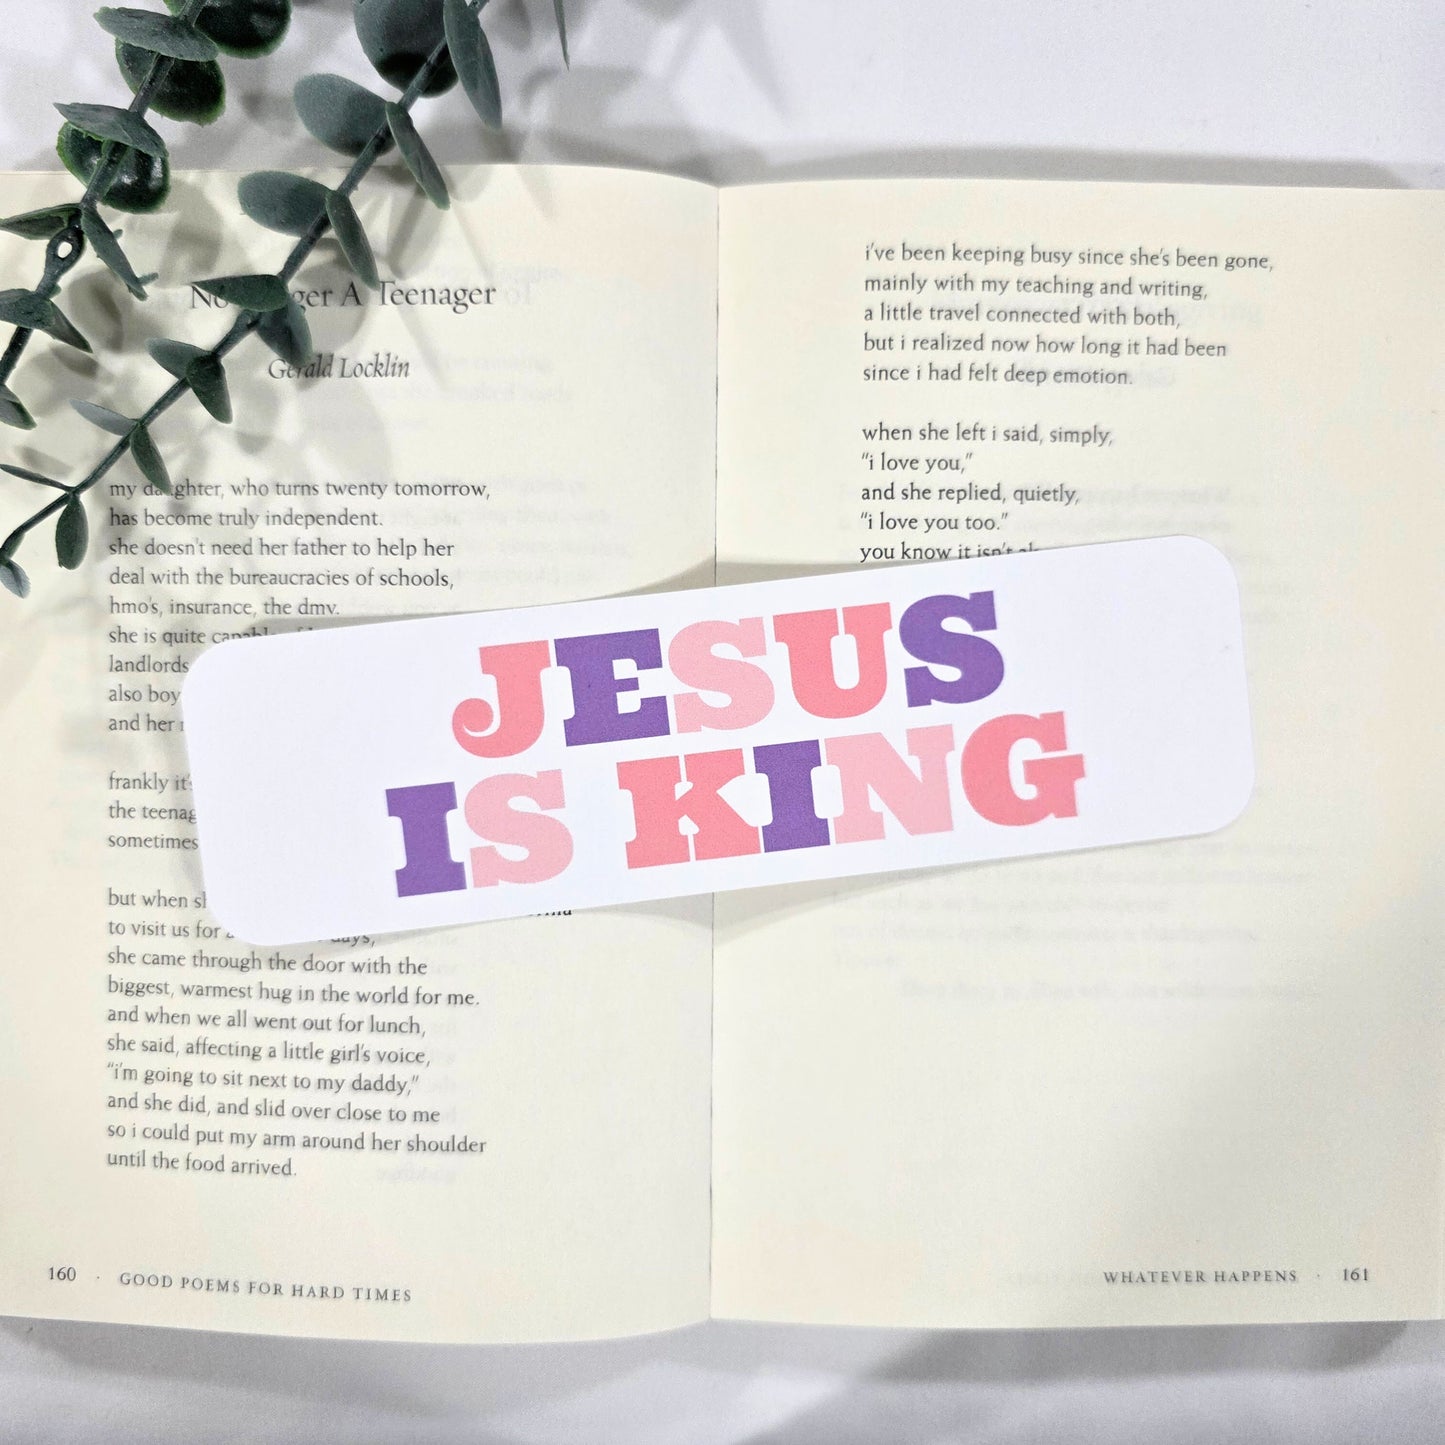 No ger A Teenager
Gerald Locklin
my daughter, who turns twenty tomorrow,
has become truly independent.
she doesn't need her father to help her
deal with the bureaucracies of schools,
hmo's, insurance, the dmv.
she is quite capable of
landlords
also boy
and her
frankly it's
the teenag
sometimes
but when sh
to visit us for a days,
she came through the door with the
biggest, warmest hug in the world for me.
and when we all went out for lunch,
she said, affecting a little girl's voice,
"i'm going to sit next to my daddy,"
and she did, and slid over close to me
so i could put my arm around her shoulder
until the food arrived.
160 · GOOD POEMS FOR HARD TIMES
JESUS
IS KING
i've been keeping busy since she's been gone,
mainly with my teaching and writing,
a little travel connected with both,
but i realized now how long it had been
since i had felt deep emotion.
when she left i said, simply,
"i love you,"
and she replied, quietly,
"i love you too."
you know it isn't
WHATEVER HAPPENS · 161